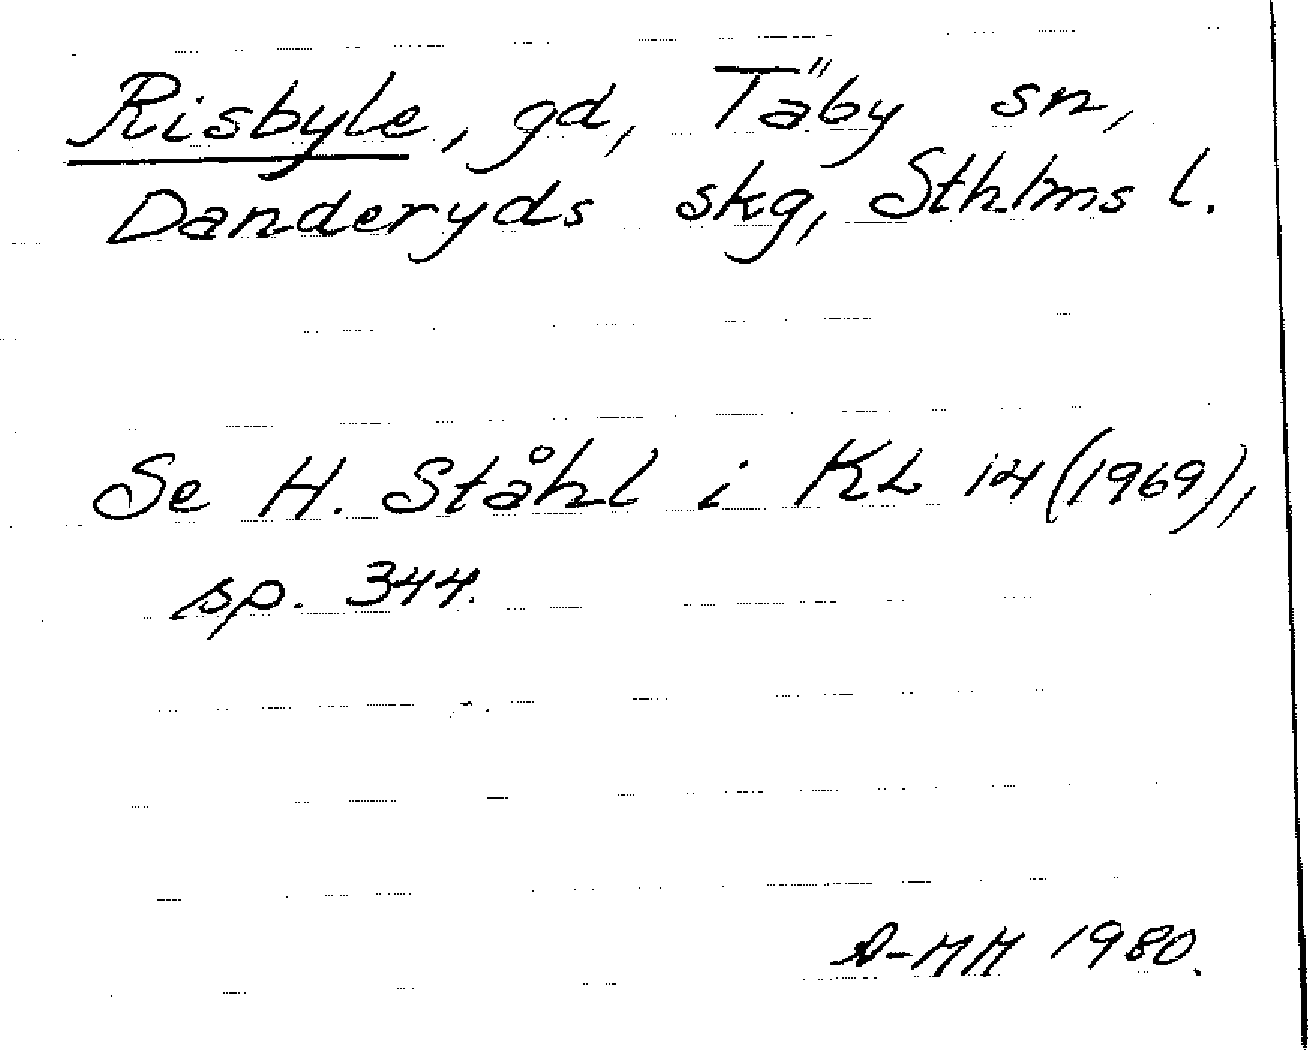 Risbyle, gd, Täby sn,
Danderyds skg, Sthlms l.
Se H. Ståhl i KL 14 (1969),
sp. 344.
A-MH 1980.